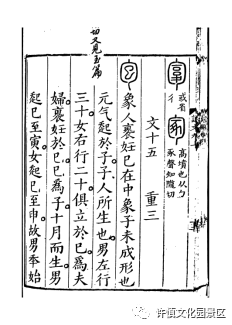 切又見玉篇
或省彳
高墳也从勹
豖聲知隴切
文十五 重三
象人裹妊巳在中象子未成形也
元气起於子子人所生也男左行
三十女右行二十俱立於巳爲夫
婦裹妊於巳巳爲子十月而生男
起巳至寅女起巳至申故男秊始
许慎文化园景区